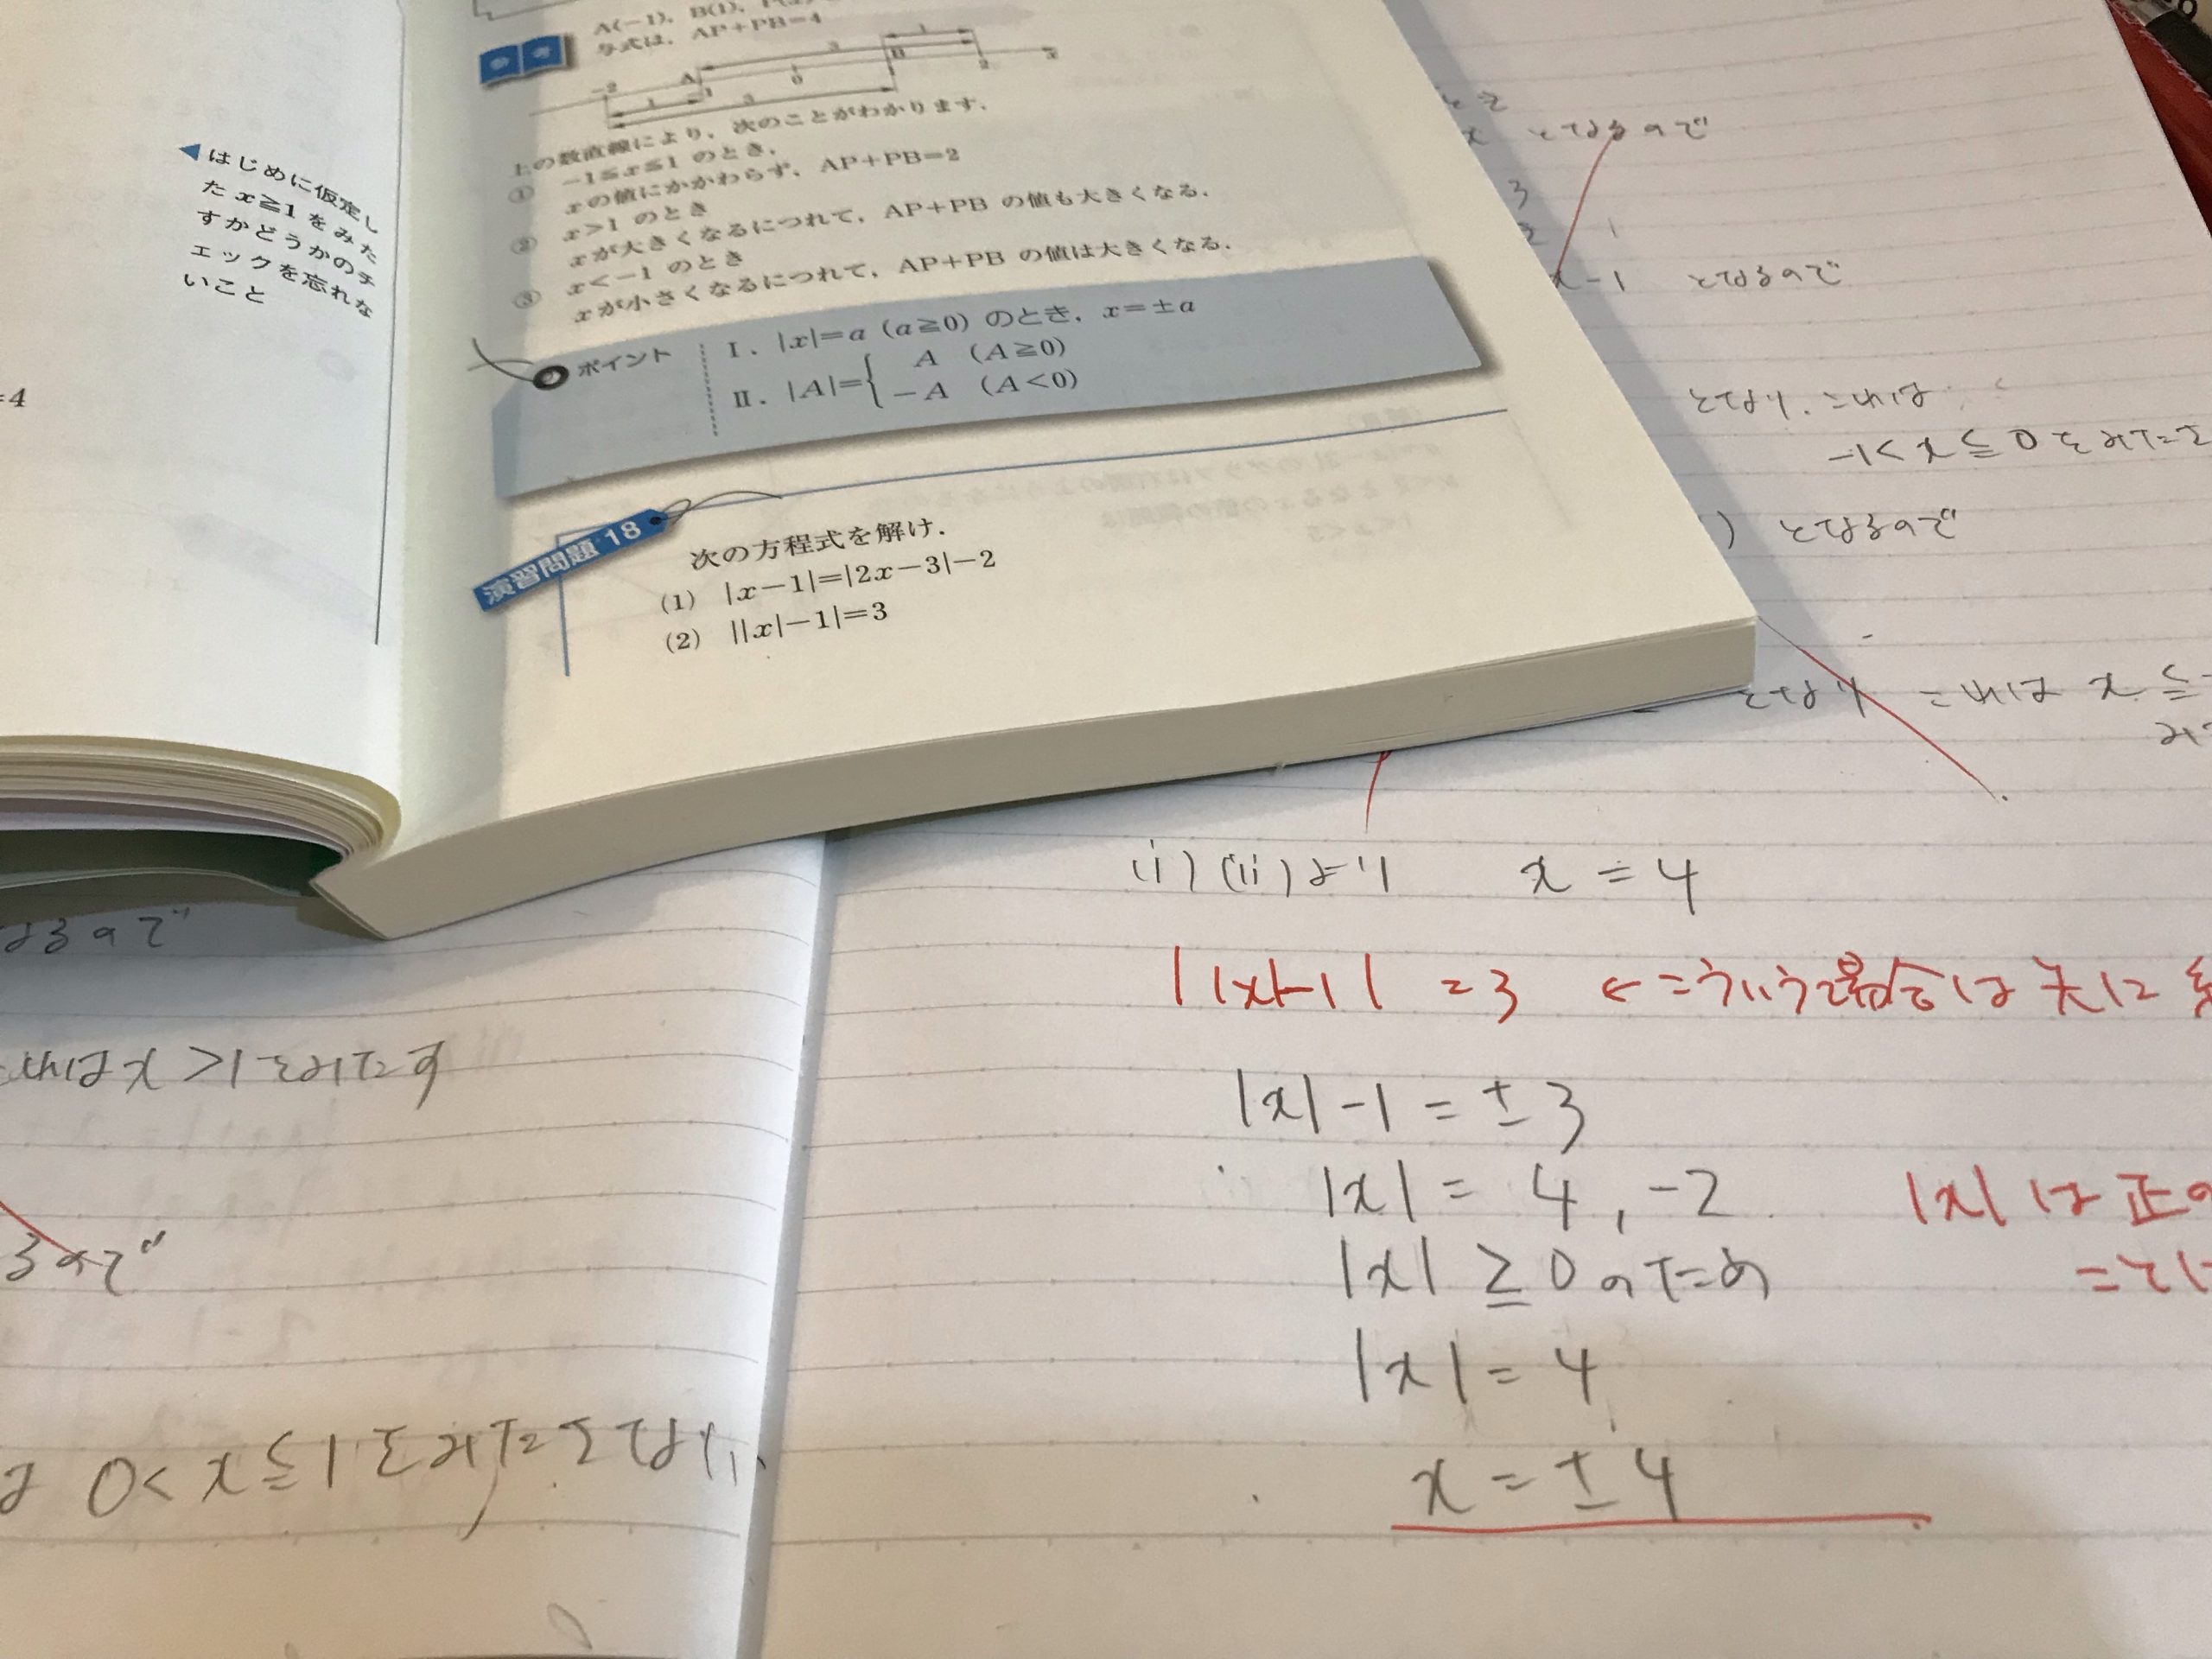 =4
◀はじめに仮定し
た x≧1 をみた
すかどうかのチ
ェックを忘れな
いこと
A(−1), B(1),
参考
与式は，AP+PB=4
3
1
−2
A
−1
0
B
2
x
1
3
上の数直線により，次のことがわかります．
① −1≦x≦1 のとき，
xの値にかかわらず，AP+PB=2
② x>1 のとき
xが大きくなるにつれて，AP+PB の値も大きくなる．
③ x<−1 のとき
xが小さくなるにつれて，AP+PB の値は大きくなる．
ポイント
Ⅰ．|x|=a (a≧0) のとき，x=±a
Ⅱ．|A|={ A (A≧0)
−A (A<0)
演習問題 18
次の方程式を解け．
(1) |x−1|=|2x−3|−2
(2) ||x|−1|=3
x となるので
3
x-1 となるので
となり、これは
-1<x≦0をみたさ
) となるので
となり これは x≦-
み
(i)(ii)より x=4
||x|-1|=3 ←こういう場合は先に
|x|-1=±3
|x|=4,-2
|x|は正の
|x|≧0のため
|x|=4
x=±4
なるので
これはx>1をみたす
るので
は 0<x≦1をみたさない、